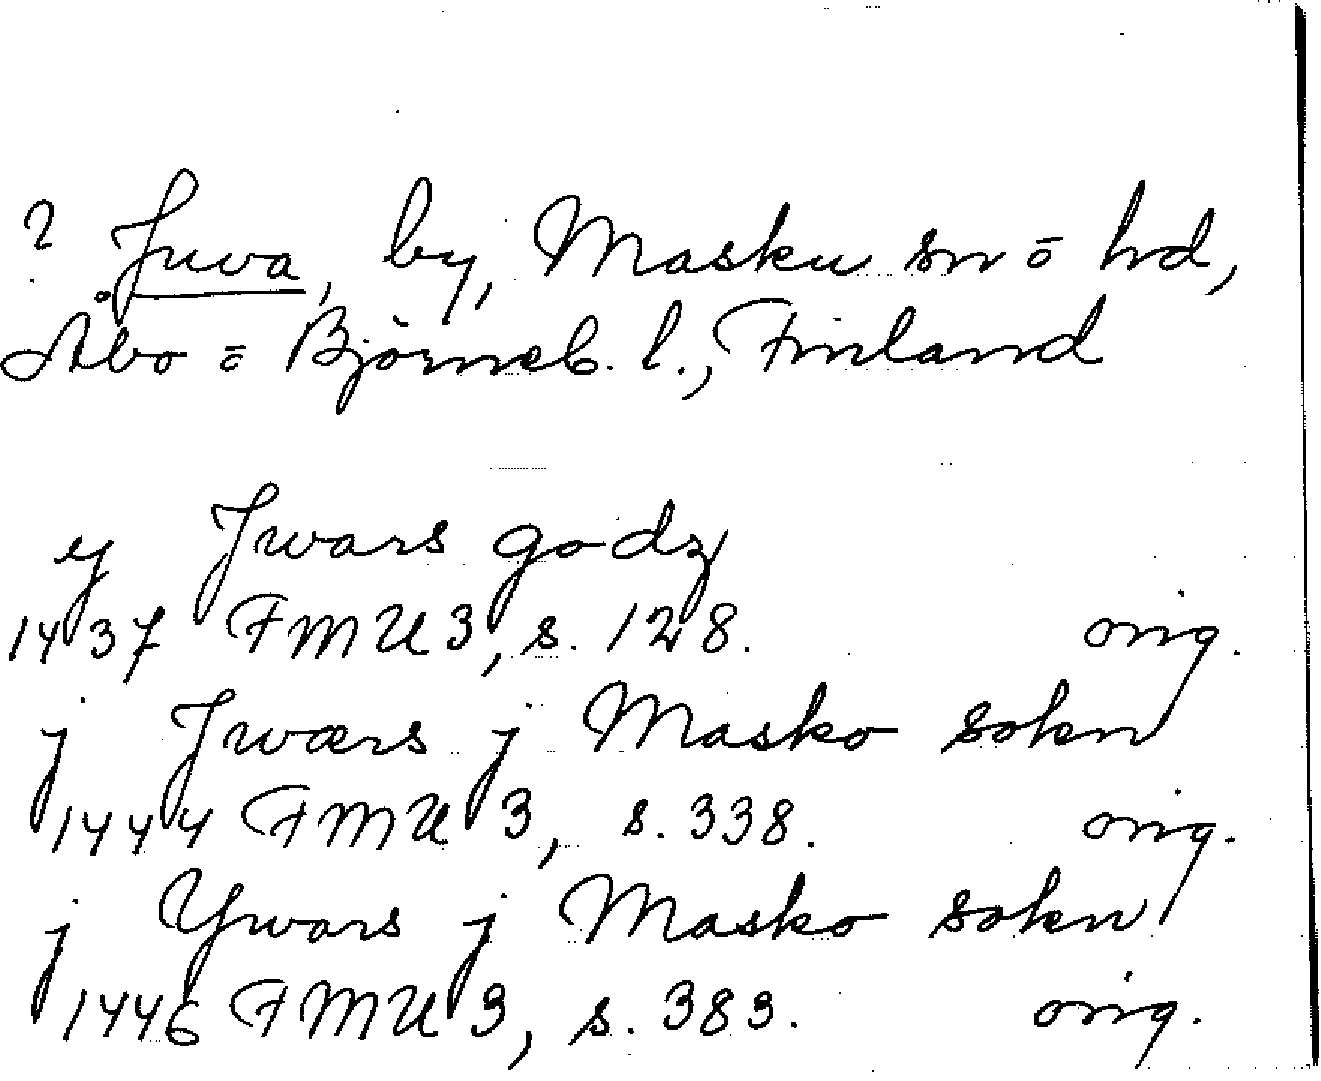 ? Juva, by, Masku sn o hd,
Åbo o Björneb. l., Finland
ij Jwars godz
1437 FMU 3, s. 128. orig.
j Jwærs j Masko sokn
1444 FMU 3, s. 338. orig.
j Ywars j Masko sokn
1446 FMU 3, s. 383. orig.